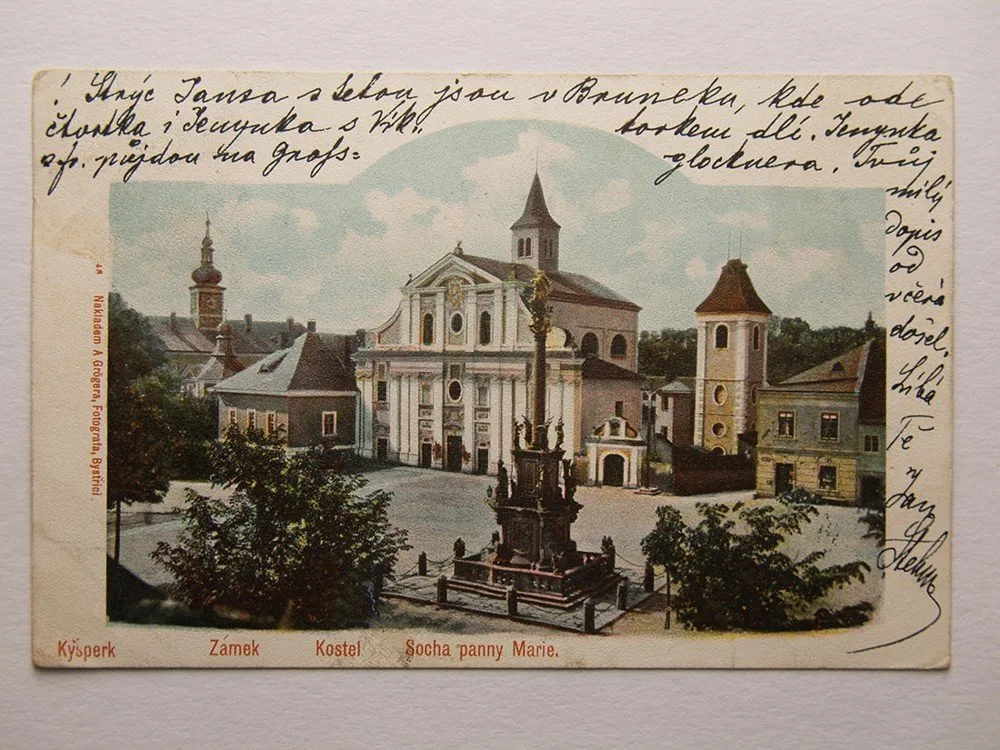 ! Strýc Jansa s tetou jsou v Brunecku, kde ode
čtvrtka i Jenynka s Vik. torkem dlí. Jenynka
a fr. půjdou na Gross= glocknera. Tvůj
milý
dopis
od
včera
došel.
Líbá
Tě
Jan
48
Nakladem A Grögera, Fotografa, Bystřici.
Kyšperk Zámek Kostel Socha panny Marie.